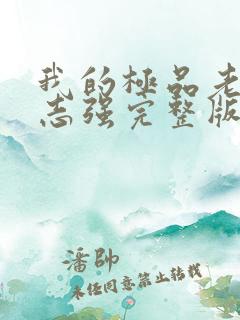 我的極品老
志強完整版
潘帥
未任同意禁止转载